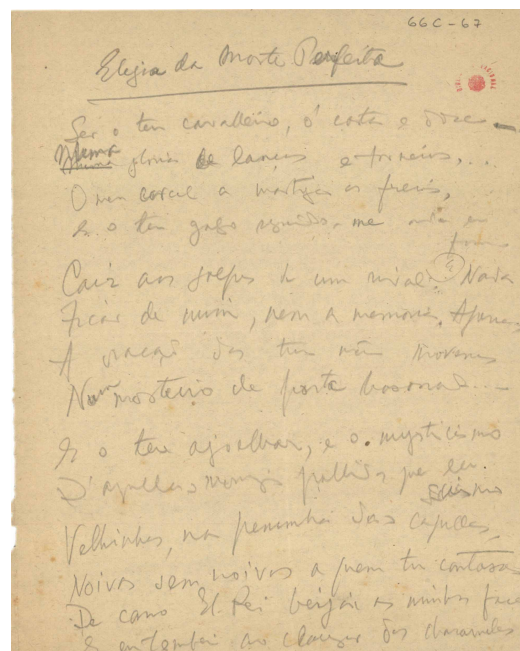 66C-67
Elegia da Morte Perfeita
Ser o teu cavalleiro, ó casta e doce
gloria de lanças e torneios,...
O meu corcel a mastigar os freios,
E o teu me
Cair aos golpes de um rival. Nada
Ficar de mim, nem a memoria. Apenas
A oração das tuas mãos morenas
N'um mosteiro de porta
E o teu ajoelhar, e o mysticismo
D'aquellas monjas pallidas que eu
Velhinhas, na penumbra das capellas,
Noivas sem noivos a quem tu contasses
De como El Rei beijou as minhas faces
E ao clangor das charamelas